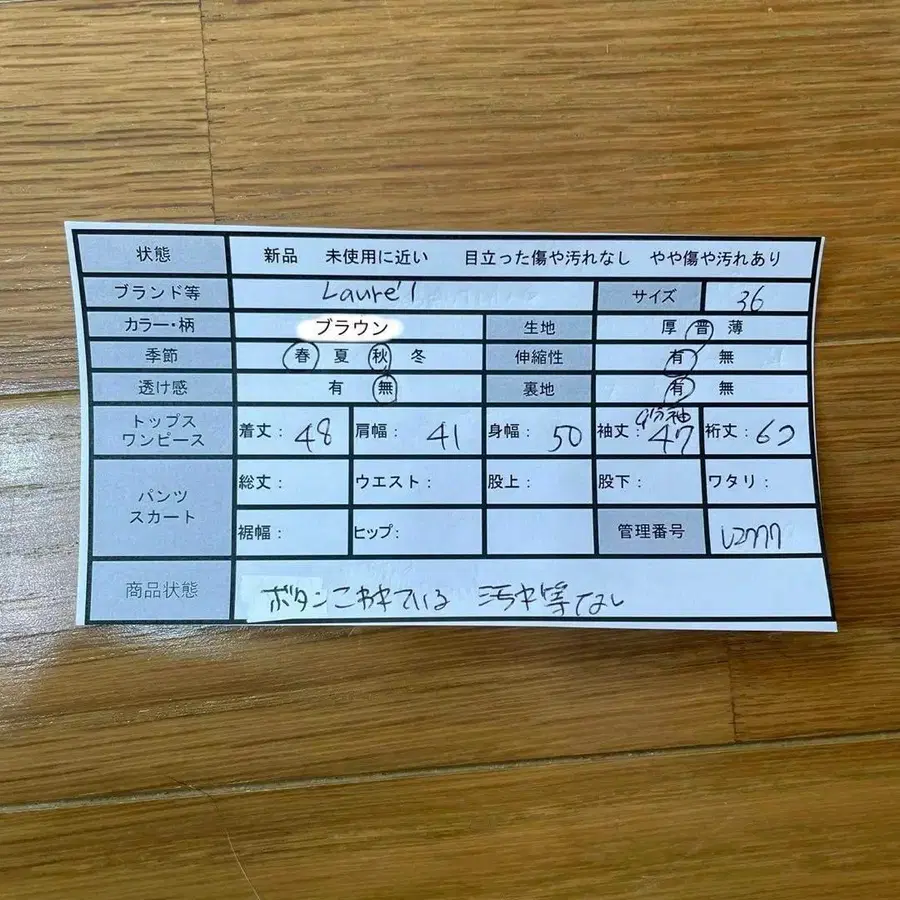 状態 新品 未使用に近い 目立った傷や汚れなし やや傷や汚れあり
ブランド等 Laure'l サイズ 36
カラー・柄 ブラウン 生地 厚 普 薄
季節 春 夏 秋 冬 伸縮性 有 無
透け感 有 無 裏地 有 無
トップス ワンピース 着丈: 48 肩幅: 41 身幅: 50 袖丈: 9分袖 47 裄丈:
パンツ スカート 総丈: ウエスト: 股上: 股下: ワタリ:
裾幅: ヒップ: 管理番号
商品状態 ボタンこわれている 汚れ等なし